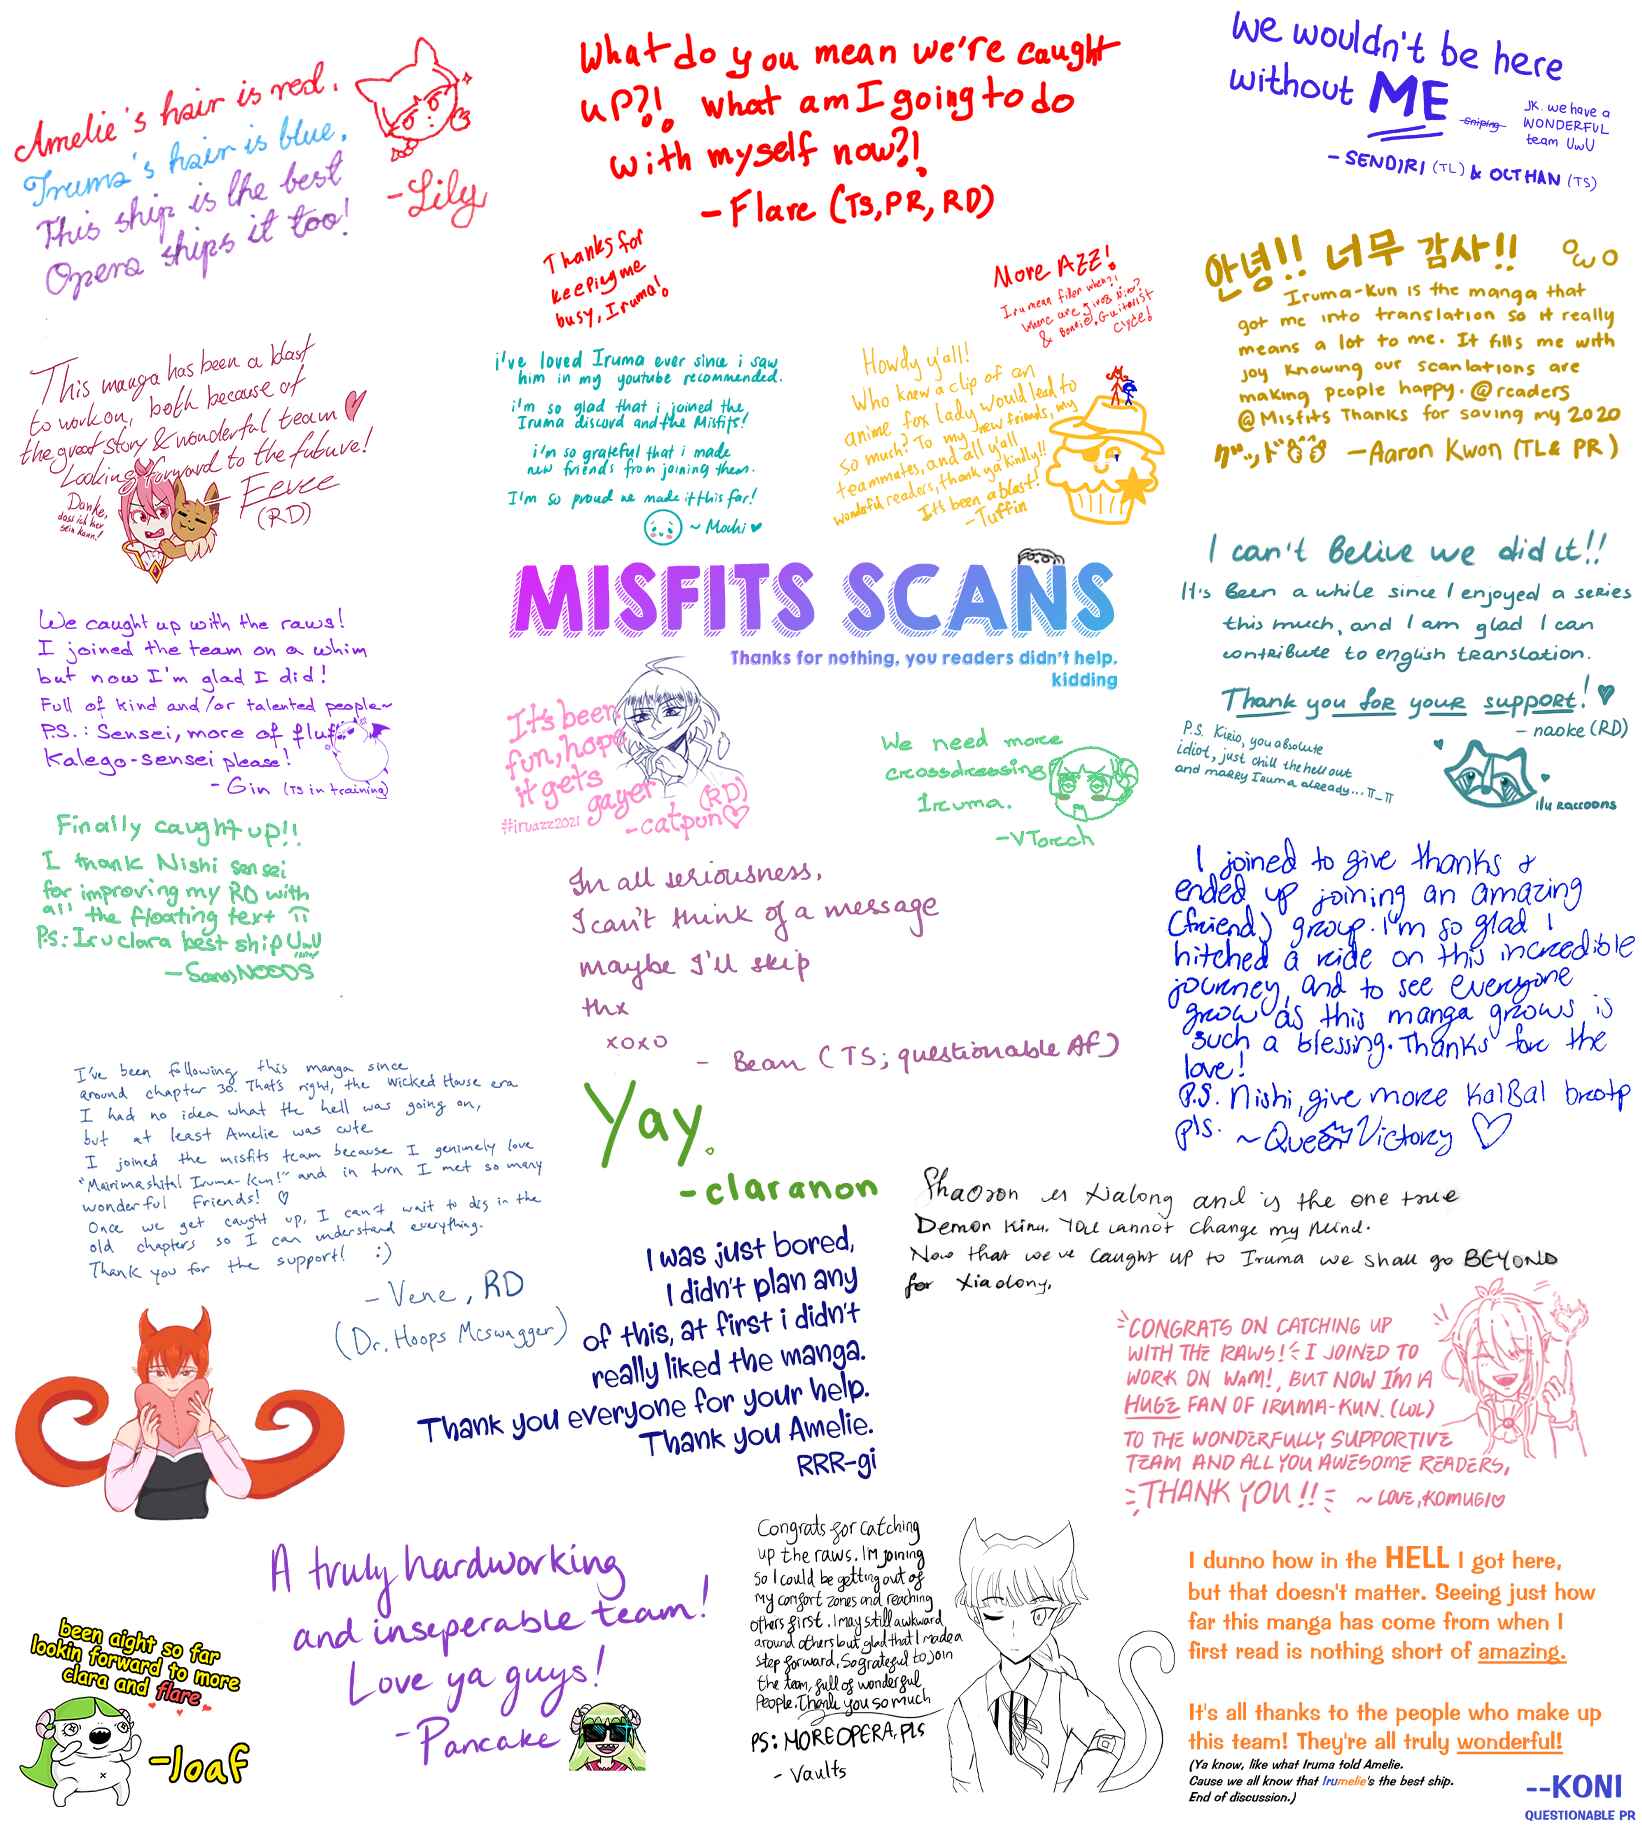 Amelie's hair is red.
Iruma's hair is blue.
This ship is the best
Opera ships it too!
-Lily
What do you mean we're caught
up?!! what am I going to do
with myself now?!
-Flare (TS, PR, RD)
we wouldn't be here
without ME
sniping
JK. we have a
WONDERFUL
team UwU
- SENDIRI (TL) & OCTHAN (TS)
Thanks for
keeping me
busy, Iruma!
More AZZ!
Iru mean filer when?!
Where are girls
& Bonnie, Guitarist
Clyde!
안녕!! 너무 감사!! OwO
Iruma-Kun is the manga that
got me into translation so it really
means a lot to me. It fills me with
joy knowing our scanlations are
making people happy. @readers
@Misfits Thanks for saving my 2020
グッド
-Aaron Kwon (TL & PR)
This manga has been a blast
to work on, both because of
the great story & wonderful team
Looking forward to the future!
- Eevee
(RD)
Danke,
dass ich hier
sein kann!
i've loved Iruma ever since i saw
him in my youtube recommended.
i'm so glad that i joined the
Iruma discord and the Misfits!
i'm so grateful that i made
new friends from joining them.
I'm so proud we made it this far!
~ Mochi
Howdy y'all!
Who knew a clip of an
anime fox lady would lead to
so much? To my new friends, my
teammates, and all y'all
wonderful readers, thank ya kindly!!
It's been a blast!
-Tuffin
MISFITS SCANS
Thanks for nothing, you readers didn't help.
kidding
I can't Belive we did it!!
It's Been a while since I enjoyed a series
this much, and I am glad I can
contribute to english translation.
Thank you for your support!
- naoke (RD)
P.S. Kirio, you absolute
idiot, just chill the hell out
and marry Iruma already... π_π
ilu raccoons
We caught up with the raws!
I joined the team on a whim
but now I'm glad I did!
Full of kind and/or talented people~
P.S.: Sensei, more of fluff
Kalego-sensei please!
- Gin (TS in training)
It's been
fun, hope
it gets
gayer
#iruazz2021
(RD)
-catpun
We need more
crossdressing
Iruma.
-VTorch
Finally caught up!!
I thank Nishi sensei
for improving my RD with
all the floating text π
P.S: Iruclara best ship UwU
In all seriousness,
I can't think of a message
maybe I'll skip
thx
xoxo
- Bean (TS; questionable AF)
I joined to give thanks &
ended up joining an amazing
(friend) group. I'm so glad I
hitched a ride on this incredible
journey, and to see everyone
grow as this manga grows is
such a blessing. Thanks for the
love!
P.S. Nishi, give more KalBal brotp
pls. ~Queen Victory
I've been following this manga since
around chapter 30. That's right, the Wicked House era
I had no idea what the hell was going on,
but at least Amelie was cute
I joined the misfits team because I genuinely love
"Mairimashita! Iruma-Kun!" and in turn I met so many
wonderful friends!
Once we get caught up, I can't wait to dig in the
old chapters so I can understand everything.
Thank you for the support! :)
- Vene, RD
(Dr. Hoops McSwagger)
Yay.
-claranon
Shaoron is Xialong and is the one true
Demon King. You cannot change my mind.
Now that we've caught up to Iruma we shall go BEYOND
for Xiaolong.
I was just bored,
I didn't plan any
of this, at first i didn't
really liked the manga.
Thank you everyone for your help.
Thank you Amelie.
RRR-gi
CONGRATS ON CATCHING UP
WITH THE RAWS! I JOINED TO
WORK ON WAM!, BUT NOW I'M A
HUGE FAN OF IRUMA-KUN. (LOL)
TO THE WONDERFULLY SUPPORTIVE
TEAM AND ALL YOU AWESOME READERS,
THANK YOU!!
~ LOVE, KOMUGI
A truly hardworking
and inseperable team!
Love ya guys!
-Pancake
Congrats for catching
up the raws. I'm joining
so I could be getting out of
my comfort zones and reaching
others first. I may still awkward
around others but glad that I made a
step forward. So grateful to join
the team, full of wonderful
People. Thank you so much
PS: MORE OPERA, PLS
- Vaults
I dunno how in the HELL I got here,
but that doesn't matter. Seeing just how
far this manga has come from when I
first read is nothing short of amazing.
It's all thanks to the people who make up
this team! They're all truly wonderful!
(Ya know, like what Iruma told Amelie.
Cause we all know that Irumelie's the best ship.
End of discussion.)
--KONI
QUESTIONABLE PR
been aight so far
lookin forward to more
clara and flare
-loaf